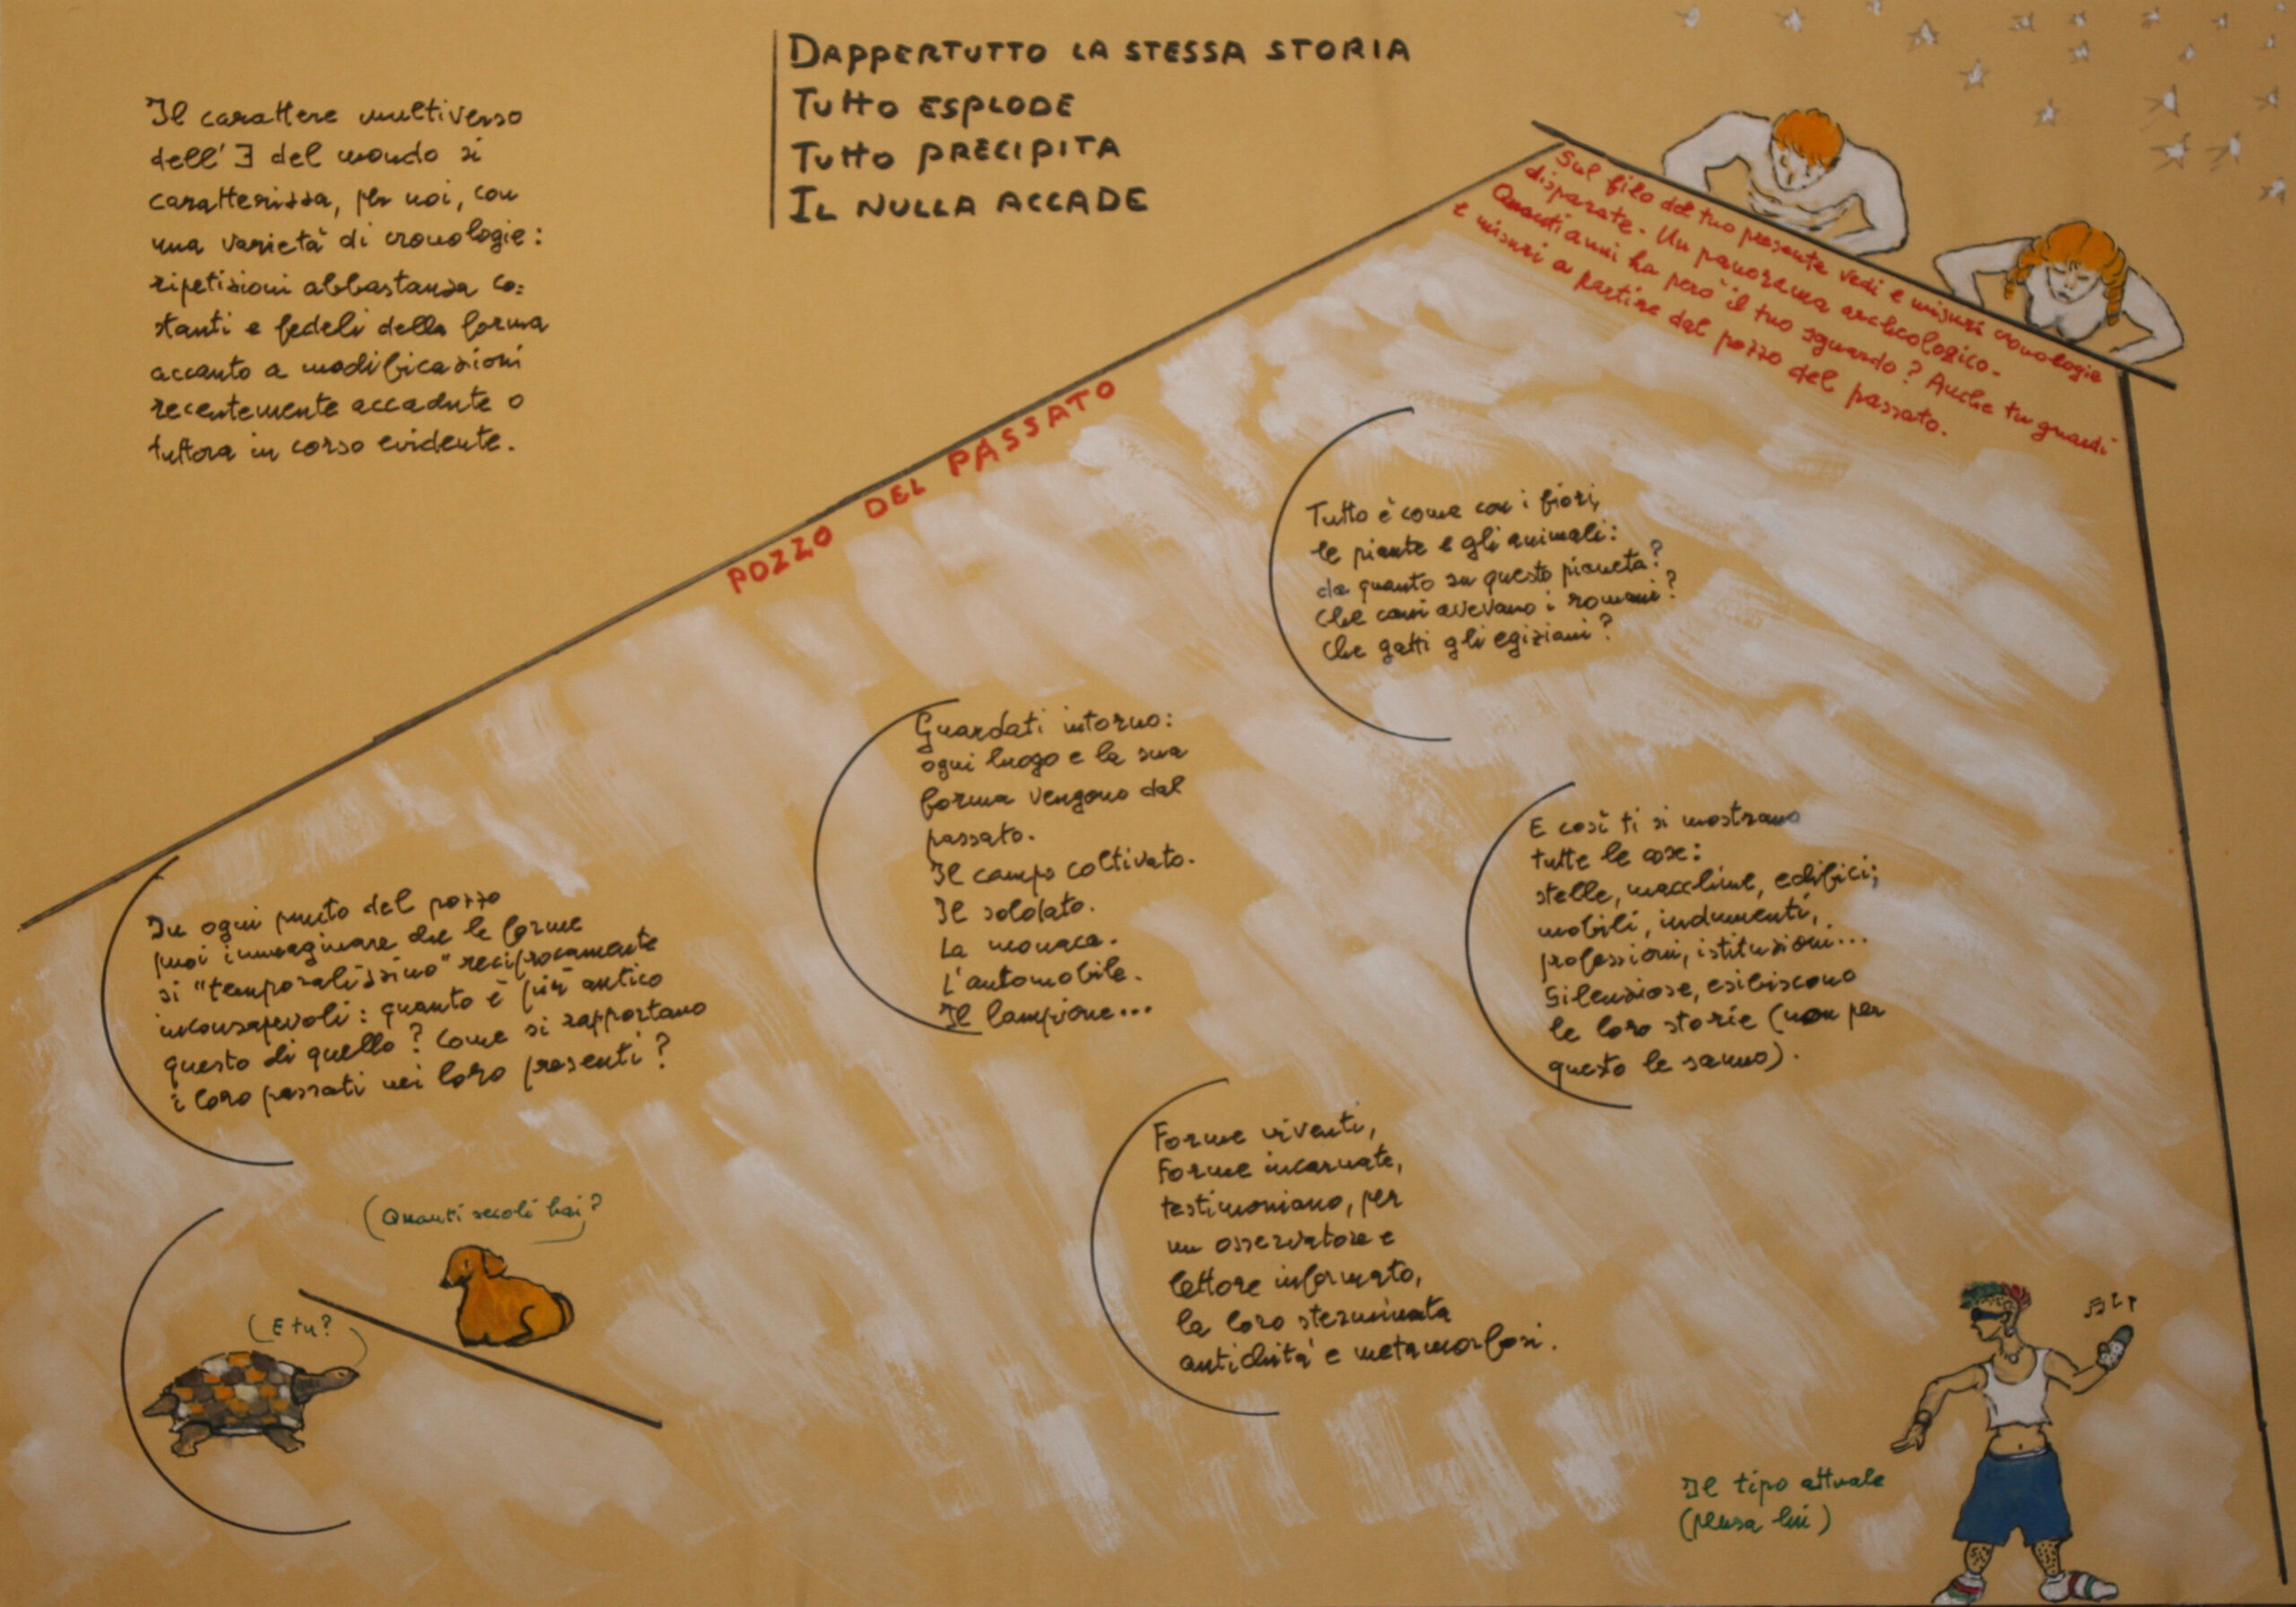 DAPPERTUTTO LA STESSA STORIA
TUTTO ESPLODE
TUTTO PRECIPITA
IL NULLA ACCADE
Il carattere multiverso
dell' ∃ del mondo si
caratterizza, per noi, con
una varietà di cronologie:
ripetizioni abbastanza co=
stanti e fedeli della forma
accanto a modificazioni
recentemente accadute o
tuttora in corso evidente.
Sul filo del tuo presente vedi e misuri cronologie
disparate. Un panorama archeologico.
Quanti anni ha però il tuo sguardo? Anche tu guardi
e misuri a partire dal pozzo del passato.
POZZO DEL PASSATO
Tutto è come con i fiori,
le piante e gli animali:
da quanto su questo pianeta?
Che cani avevano i romani?
Che gatti gli egiziani?
Guardati intorno:
ogni luogo e la sua
forma vengono dal
passato.
Il campo coltivato.
Il soldato.
La monaca.
L'automobile.
Il lampione...
E così ti si mostrano
tutte le cose:
stelle, macchine, edifici;
mobili, indumenti,
professioni, istituzioni...
Silenziose, esibiscono
le loro storie (non per
questo le sanno).
In ogni punto del pozzo
puoi immaginare che le forme
si "temporalizzino" reciprocamente
inconsapevoli: quanto è più antico
questo di quello? Come si rapportano
i loro passati nei loro presenti?
Forme viventi,
Forme incarnate,
testimoniano, per
un osservatore e
lettore informato,
la loro sterminata
antichità e metamorfosi.
(Quanti secoli hai?
(E tu?
Il tipo attuale
(pensa lui)